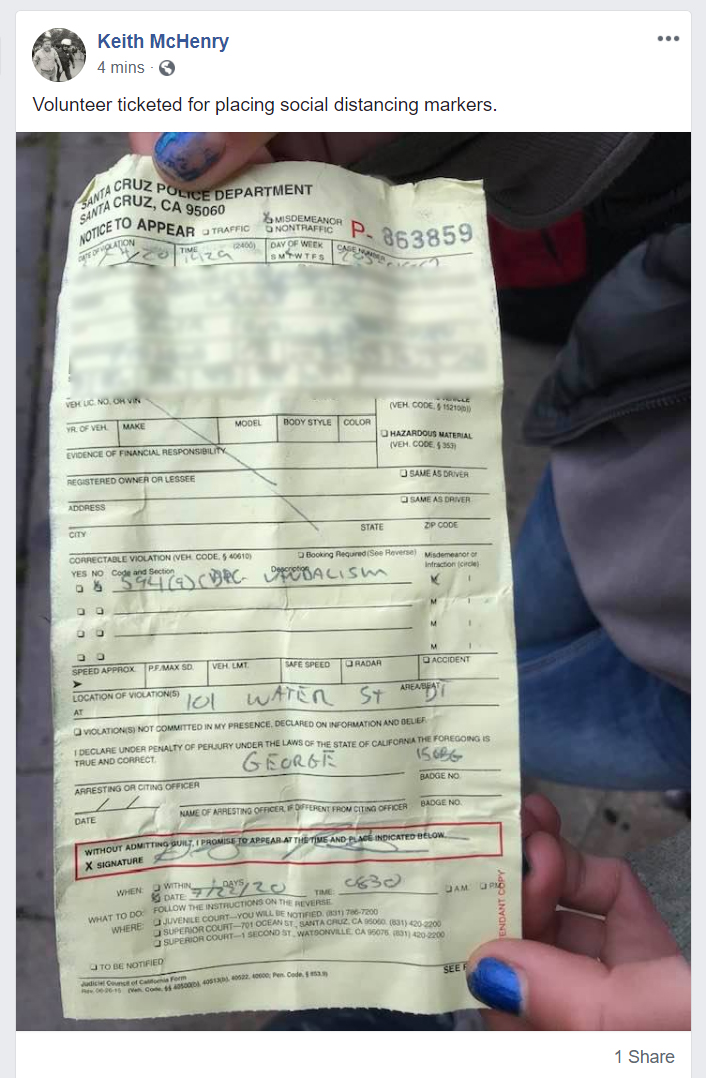 Keith McHenry
4 mins ·
Volunteer ticketed for placing social distancing markers.
SANTA CRUZ POLICE DEPARTMENT
SANTA CRUZ, CA 95060
NOTICE TO APPEAR ☐ TRAFFIC ☒ MISDEMEANOR ☐ NONTRAFFIC P- 863859
DATE OF VIOLATION TIME (2400) DAY OF WEEK CASE NUMBER
/20 S M T W T F S
VEH. LIC. NO. OR VIN
(VEH. CODE, § 15210(b))
YR. OF VEH. MAKE MODEL BODY STYLE COLOR
☐ HAZARDOUS MATERIAL
(VEH. CODE, § 353)
EVIDENCE OF FINANCIAL RESPONSIBILITY
REGISTERED OWNER OR LESSEE ☐ SAME AS DRIVER
ADDRESS ☐ SAME AS DRIVER
CITY STATE ZIP CODE
CORRECTABLE VIOLATION (VEH. CODE, § 40610) ☐ Booking Required (See Reverse) Misdemeanor or
YES NO Code and Section Description Infraction (circle)
☐ ☒ 594(a) VANDALISM M I
☐ ☐ M I
☐ ☐ M I
☐ ☐ M I
SPEED APPROX. P.F./MAX SD. VEH. LMT. SAFE SPEED ☐ RADAR ☐ ACCIDENT
LOCATION OF VIOLATION(S) AREA/BEAT
AT 101 WATER ST DT
☐ VIOLATION(S) NOT COMMITTED IN MY PRESENCE, DECLARED ON INFORMATION AND BELIEF.
I DECLARE UNDER PENALTY OF PERJURY UNDER THE LAWS OF THE STATE OF CALIFORNIA THE FOREGOING IS
TRUE AND CORRECT.
GEORGE
ARRESTING OR CITING OFFICER BADGE NO.
DATE NAME OF ARRESTING OFFICER, IF DIFFERENT FROM CITING OFFICER BADGE NO.
WITHOUT ADMITTING GUILT, I PROMISE TO APPEAR AT THE TIME AND PLACE INDICATED BELOW.
X SIGNATURE
WHEN: ☐ WITHIN DAYS
☒ DATE: 7/22/20 TIME: 0830 ☐ A.M. ☐ P.M.
WHAT TO DO: FOLLOW THE INSTRUCTIONS ON THE REVERSE.
WHERE: ☐ JUVENILE COURT—YOU WILL BE NOTIFIED. (831) 786-7200
☐ SUPERIOR COURT—701 OCEAN ST., SANTA CRUZ, CA 95060, (831) 420-2200
☐ SUPERIOR COURT—1 SECOND ST., WATSONVILLE, CA 95076, (831) 420-2200
☐ TO BE NOTIFIED
Judicial Council of California Form SEE
(Veh. Code, §§ 40500(b), 40513(b), 40522, 40600; Pen. Code, § 853.9)
ENDANT COPY
1 Share